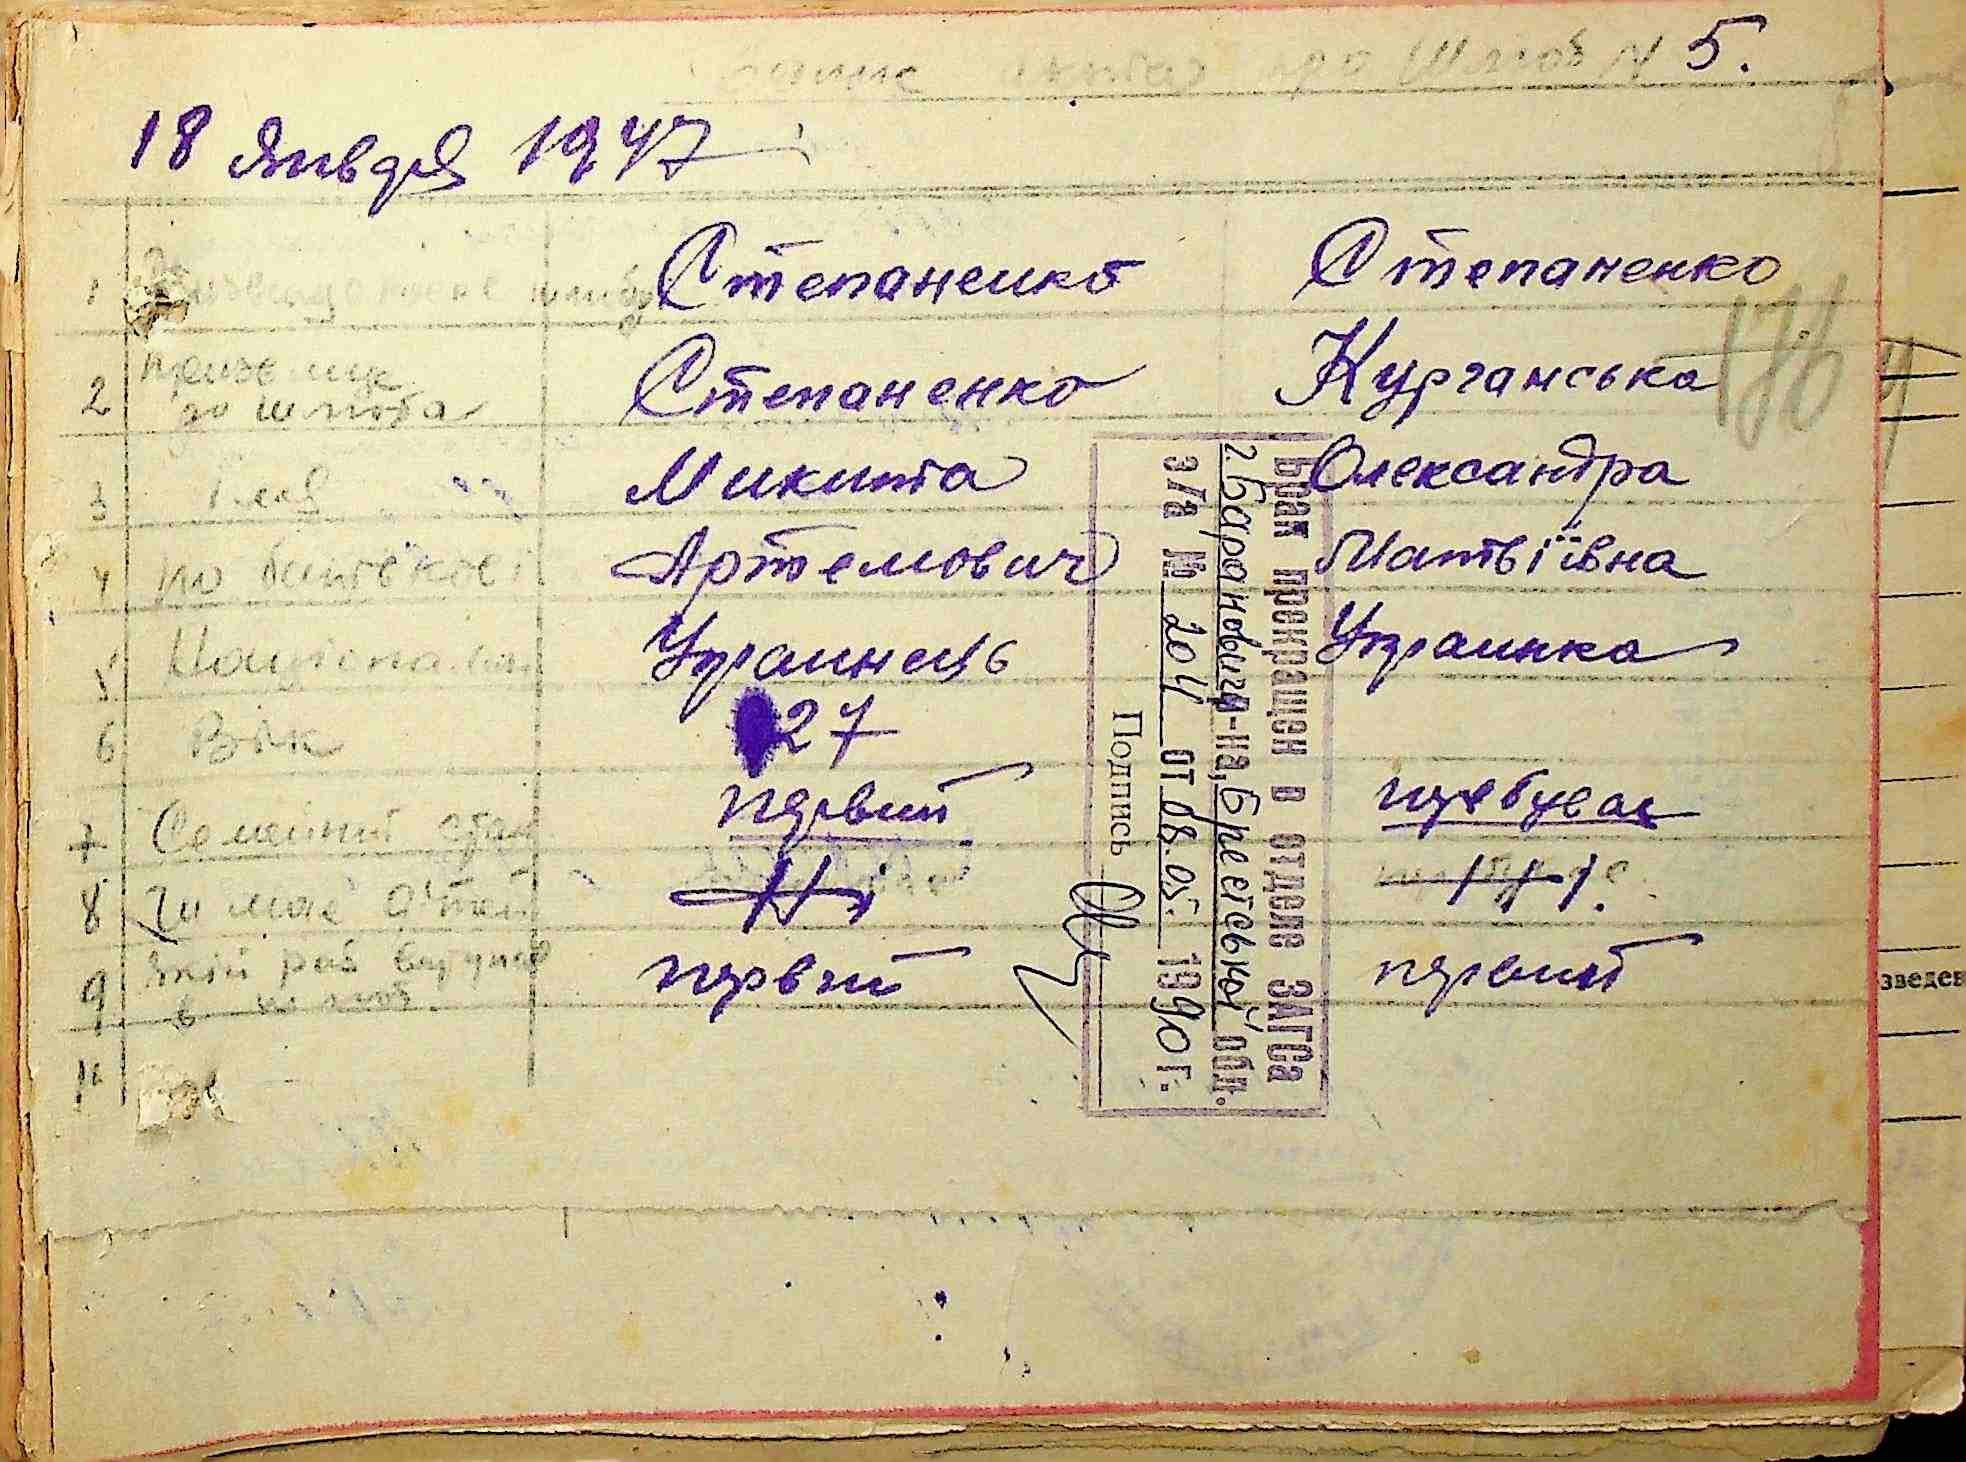 про Шлюб N 5.
18 Января 1947
1 Степаненко Степаненко
2 Призвище до шлюба Степаненко Курганська
3 Імя Микита Олександра
4 по батькові Артемович Матвіївна
5 Націонал Украинець Украинка
6 Вік 27
7 Семейний стан первий
8 Чи має дітей Ні Ні.
9 якій раз вступає в шлюб. первий первий
Брак прекращен в отделе ЗАГСа
г Барановичи-на, Брестської обл.
э/а № 204 от 08.05. 1990 г.
Подпись
зведен